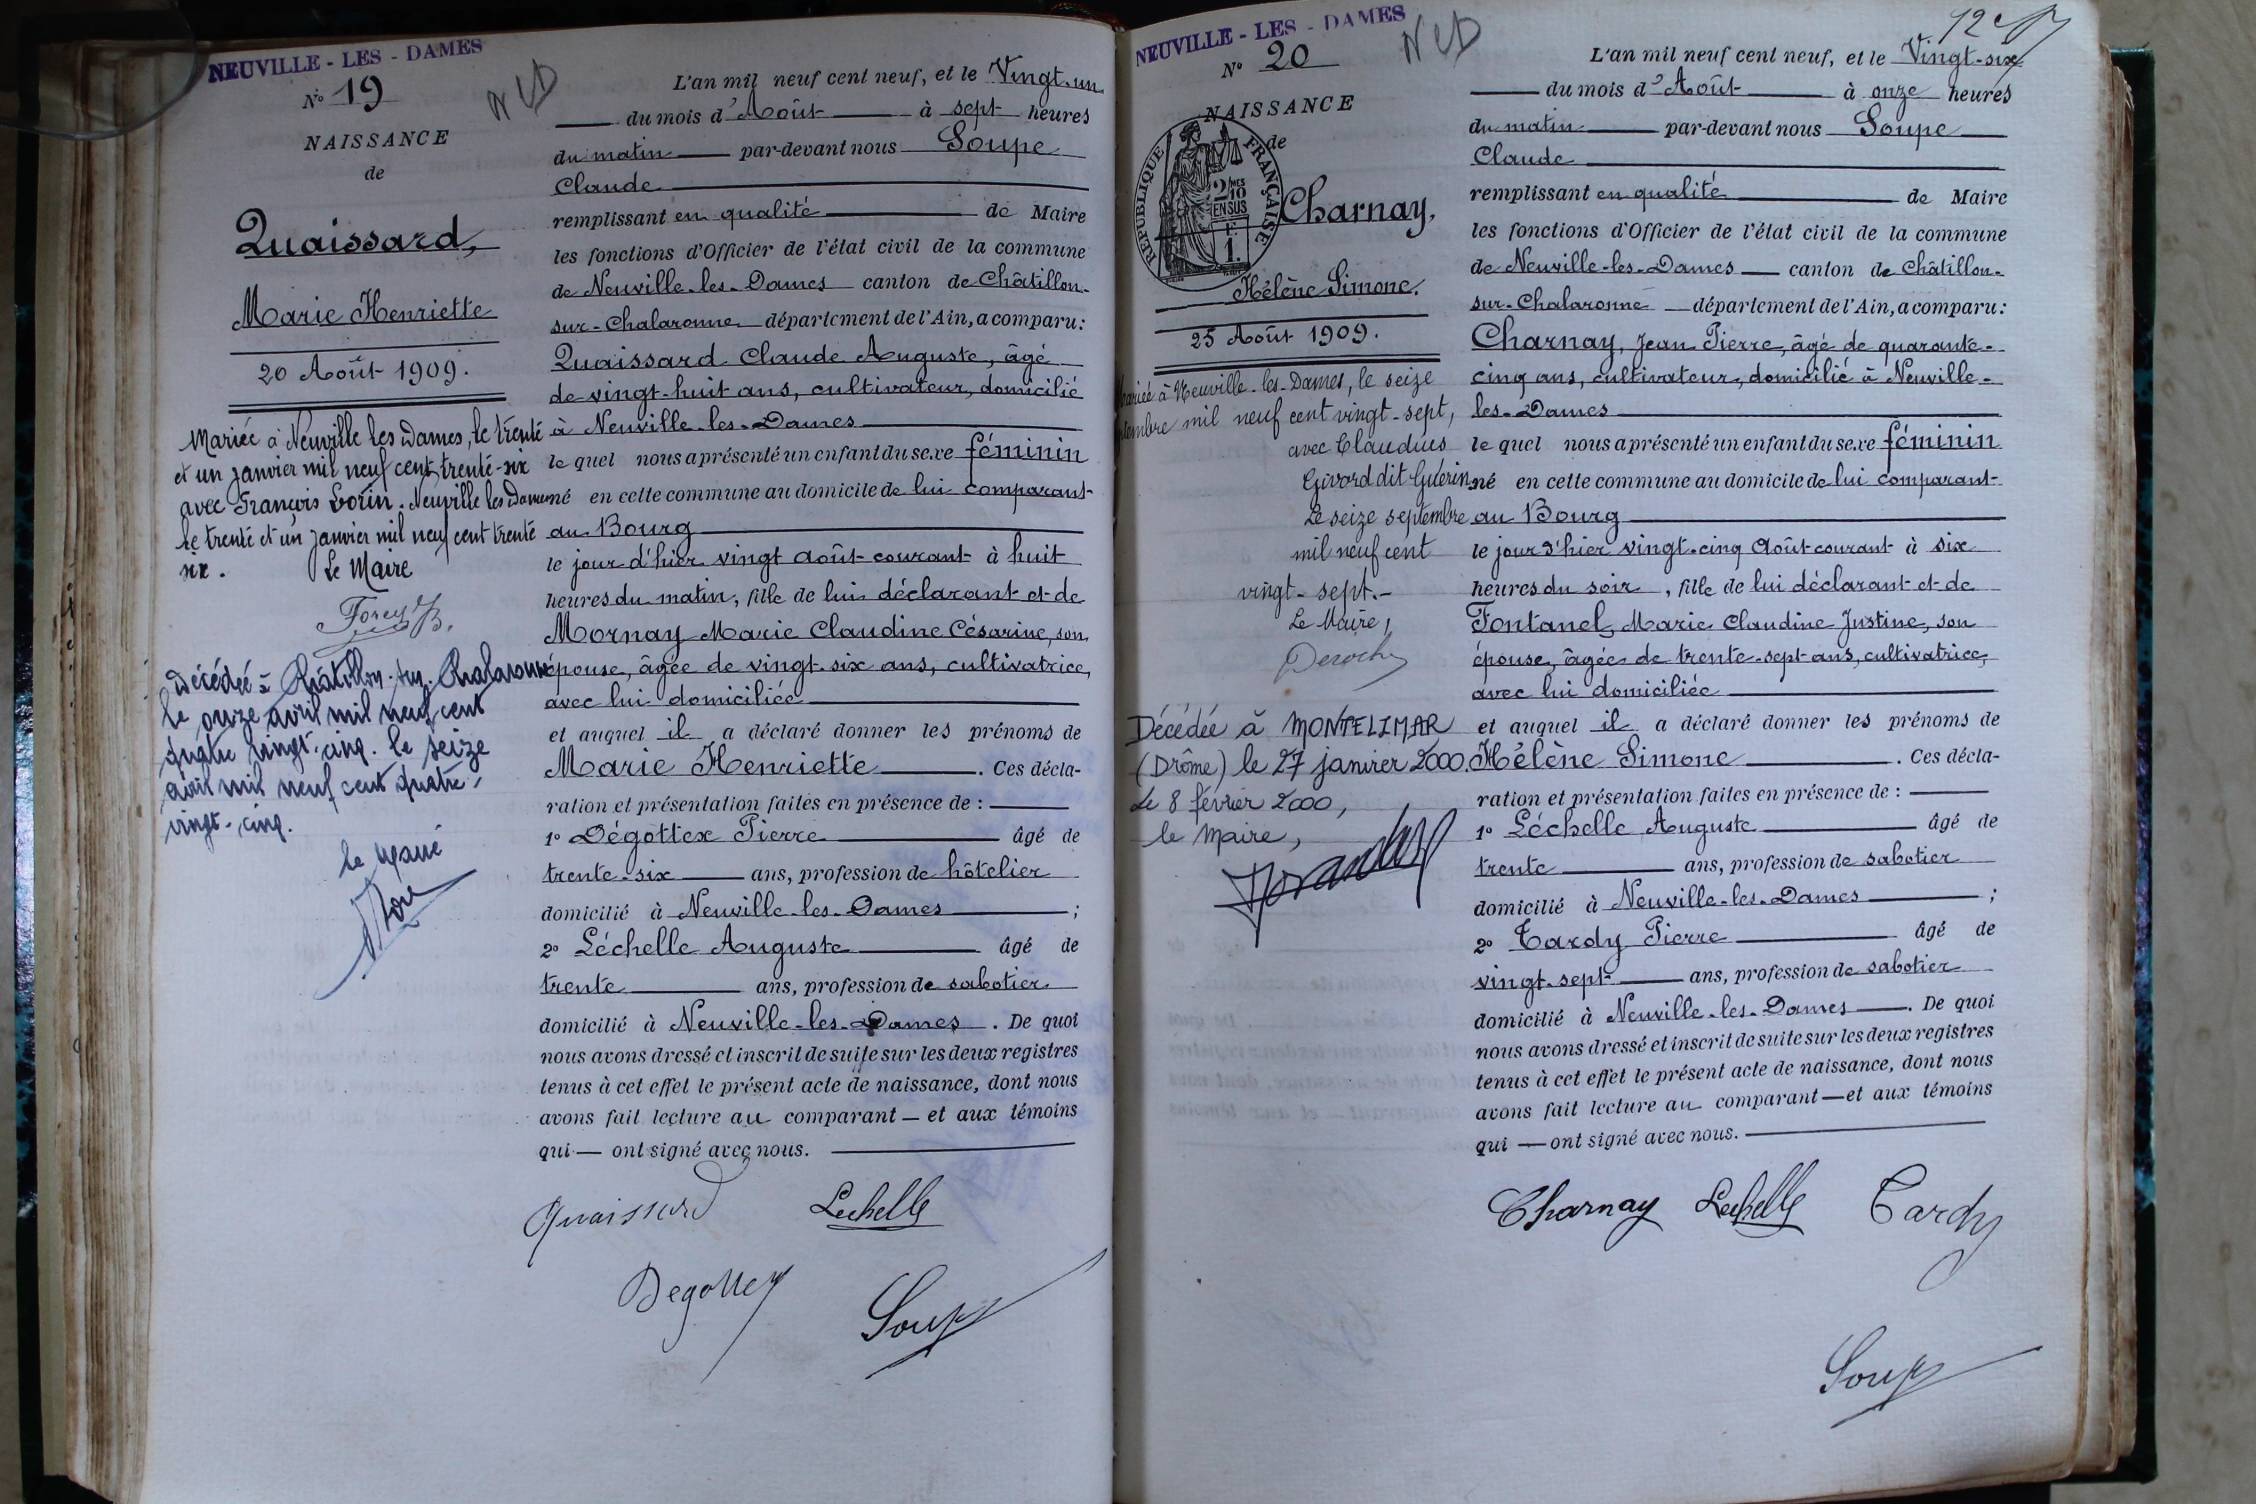 NEUVILLE - LES - DAMES
N° 19
NCD
NAISSANCE
de
Quaissard,
Marie Henriette
20 Août 1909.
Mariée à Neuville les Dames, le trente
et un janvier mil neuf cent trente-six
avec François Lorin. Neuville les Dames
le trente et un janvier mil neuf cent trente
six. Le Maire
Décédée à Châtillon-sur-Chalaronne
le onze avril mil neuf cent
quatre vingt-cinq. le seize
avril mil neuf cent quatre-
vingt-cinq.
le Maire
L'an mil neuf cent neuf, et le Vingt-un
du mois d'Août à sept heures
du matin par-devant nous Soupe
Claude
remplissant en qualité de Maire
les fonctions d'Officier de l'état civil de la commune
de Neuville-les-Dames canton de Châtillon-
sur-Chalaronne département de l'Ain, a comparu:
Quaissard Claude Auguste, âgé
de vingt-huit ans, cultivateur, domicilié
à Neuville-les-Dames
le quel nous a présenté un enfant du sexe féminin
né en cette commune au domicile de lui comparant
au Bourg
le jour d'hier vingt août courant à huit
heures du matin, fille de lui déclarant et de
Mornay Marie Claudine Césarine, son
épouse, âgée de vingt-six ans, cultivatrice,
avec lui domiciliée
et auquel il a déclaré donner les prénoms de
Marie Henriette . Ces décla-
ration et présentation faites en présence de :
1° Dégottex Pierre âgé de
trente-six ans, profession de hôtelier
domicilié à Neuville-les-Dames ;
2° Léchelle Auguste âgé de
trente ans, profession de sabotier
domicilié à Neuville-les-Dames . De quoi
nous avons dressé et inscrit de suite sur les deux registres
tenus à cet effet le présent acte de naissance, dont nous
avons fait lecture au comparant — et aux témoins
qui — ont signé avec nous.
Quaissard Lechelle
Degottex
Soupe
NEUVILLE - LES - DAMES
N° 20
NCD
12
NAISSANCE
de
RÉPUBLIQUE FRANÇAISE
2/10 MES
EN SUS
F.
1.
Charnay,
Hélène Simone.
25 Août 1909.
Mariée à Neuville-les-Dames, le seize
septembre mil neuf cent vingt-sept,
avec Claudius
Givord dit Guérin
Le seize septembre
mil neuf cent
vingt-sept.-
Le Maire,
Décédée à MONTELIMAR
(Drôme) le 27 janvier 2000.
Le 8 février 2000,
le Maire,
L'an mil neuf cent neuf, et le Vingt-six
du mois d'Août à onze heures
du matin par-devant nous Soupe
Claude
remplissant en qualité de Maire
les fonctions d'Officier de l'état civil de la commune
de Neuville-les-Dames canton de Châtillon-
sur-Chalaronne département de l'Ain, a comparu:
Charnay, Jean Pierre, âgé de quarante-
cinq ans, cultivateur, domicilié à Neuville-
les-Dames
le quel nous a présenté un enfant du sexe féminin
né en cette commune au domicile de lui comparant
au Bourg
le jour d'hier vingt-cinq Août courant à six
heures du soir , fille de lui déclarant et de
Fontanel, Marie Claudine Justine, son
épouse, âgée de trente-sept ans, cultivatrice,
avec lui domiciliée
et auquel il a déclaré donner les prénoms de
Hélène Simone . Ces décla-
ration et présentation faites en présence de :
1° Léchelle Auguste âgé de
trente ans, profession de sabotier
domicilié à Neuville-les-Dames ;
2° Tardy Pierre âgé de
vingt-sept ans, profession de sabotier
domicilié à Neuville-les-Dames . De quoi
nous avons dressé et inscrit de suite sur les deux registres
tenus à cet effet le présent acte de naissance, dont nous
avons fait lecture au comparant — et aux témoins
qui — ont signé avec nous.
Charnay Lechelle Tardy
Soupe